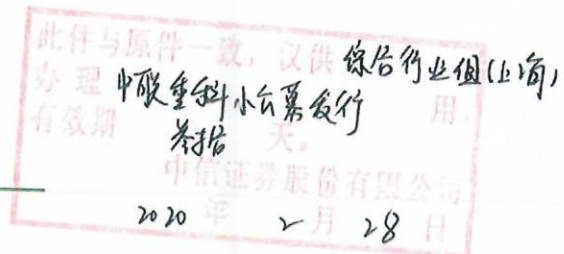 此件与原件一致，仅供 综合行业组(上海)
办理 中联重科小公募发行 用，
有效期 天。
中信证券股份有限公司
2020 年 2 月 28 日